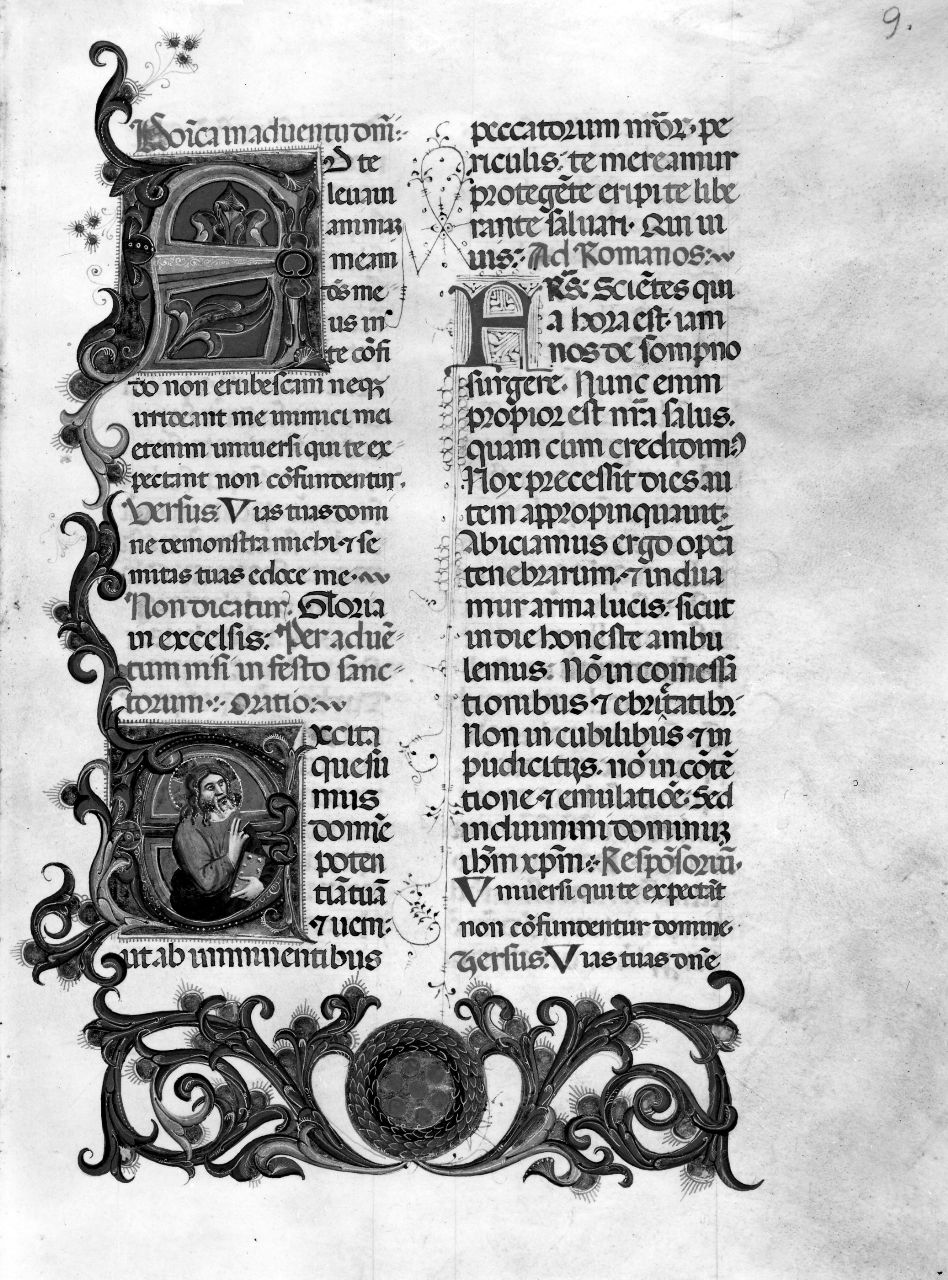 9.
Doīca in aduentu dn̄i:
AD te
leuaui
animaʒ
meam
d̄s me
us in
te cōfi
do non erubescam neqʒ
irrideant me inimici mei
etenim uniuersi qui te ex
pectant non cōfundentur.
Versus. Vias tuas domi
ne demonstra michi ⁊ se
mitas tuas edoce me.
Non dicatur. Gloria
in excelsis. Per aduē
tum nisi in festo sanc
torum. Oratio.
Excita
quesu
mus
domīe
poten
tiā tuā
⁊ ueni.
ut ab imminentibus
peccatorum nr̄oꝝ. pe
riculis. te mereamur
protegēte eripi te libe
rante saluari. Qui ui
uis. Ad Romanos.
FRS̄. Sciētes qui
a hora est. iam
nos de sompno
surgere. Nunc enim
propior est nr̄a salus.
quam cum credidimꝰ
Nox precessit dies au
tem appropinquauit.
Abiciamus ergo opeā
tenebrarum. ⁊ indua
mur arma lucis. sicut
in die honeste ambu
lemus. Nō in comessā
tionibus ⁊ ebrietatibꝫ.
Non in cubilibus ⁊ in
pudicitijs. nō in cōtē
tione ⁊ emulatiōe. Sed
induimini dominuʒ
ihm̄ xpm̄. Respōsoriū.
Uniuersi qui te expectāt
non cōfundentur domine.
Versus. Vias tuas dn̄e